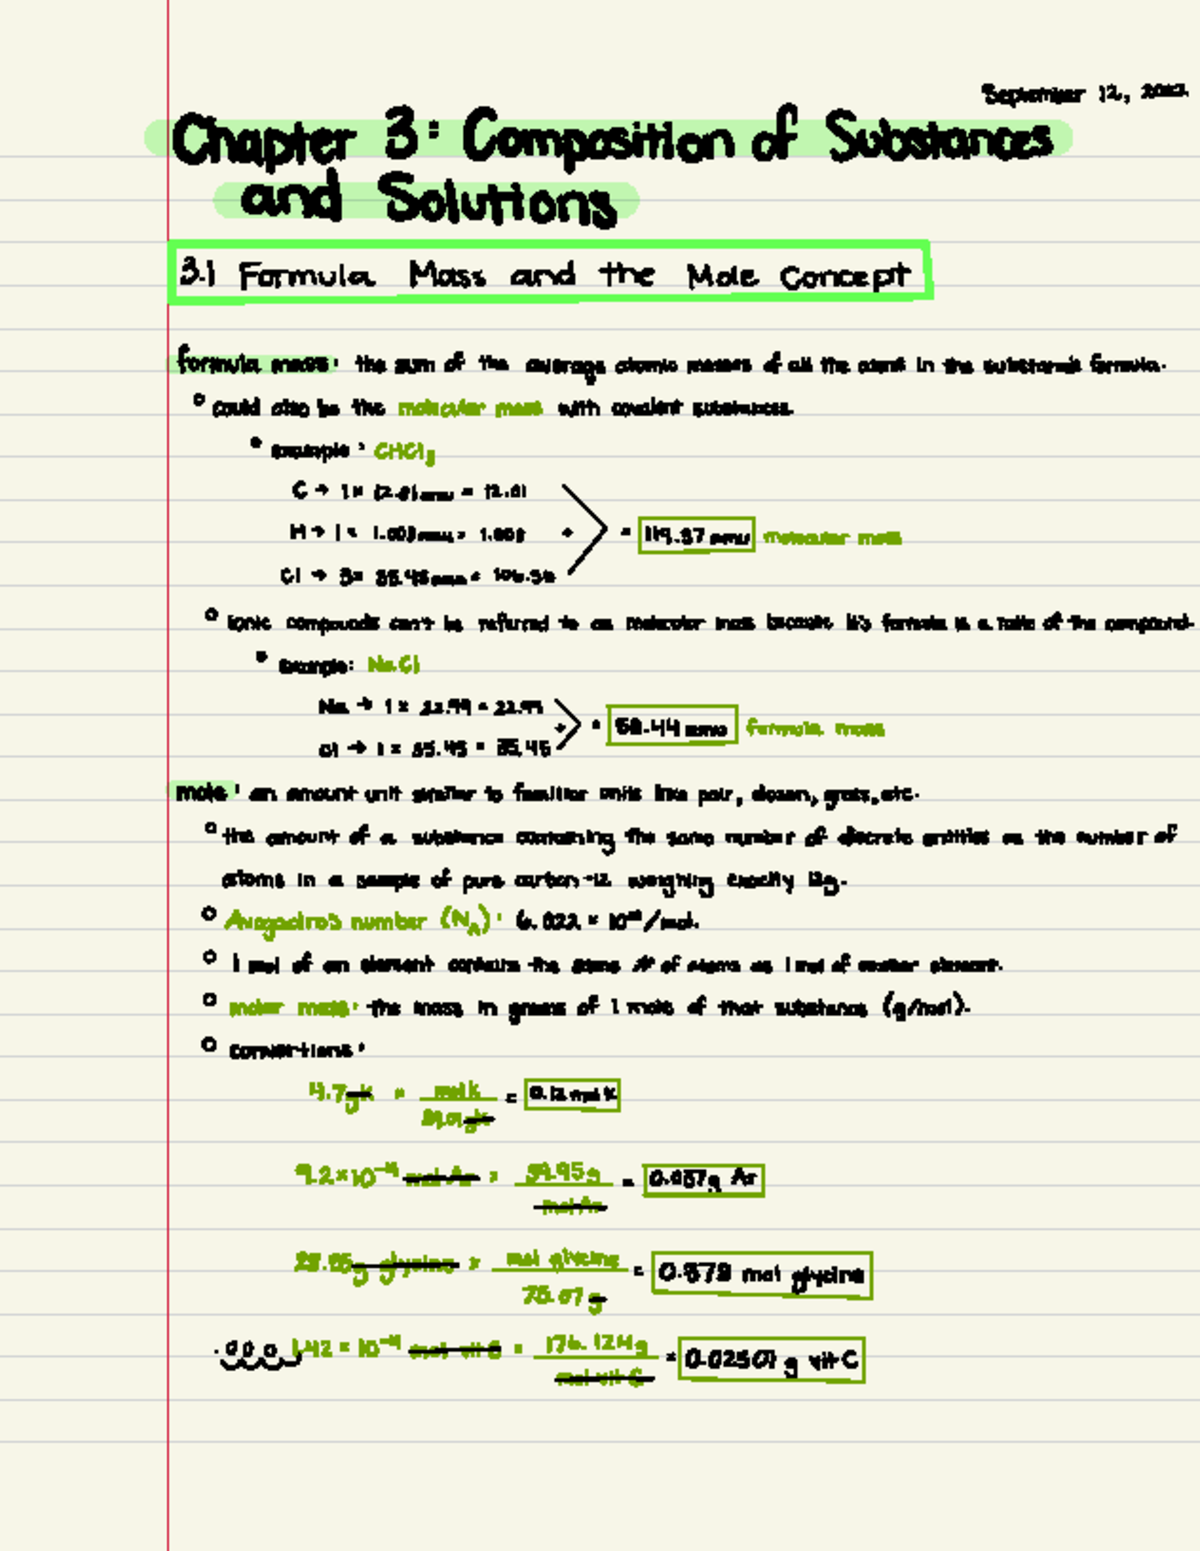 September 12, 2022
Chapter 3: Composition of Substances
and Solutions
3.1 Formula Mass and the Mole Concept
formula mass: the sum of the average atomic masses of all the atoms in the substance's formula.
° could also be the molecular mass with covalent substances.
• example: CHCl₃
C → 1 × 12.01 amu = 12.01
H → 1 × 1.008 amu = 1.008 + = 119.37 amu molecular mass
Cl → 3 × 35.45 amu = 106.35
° Ionic compounds can't be referred to as molecular mass because it's formula is a ratio of the compound.
• example: NaCl
Na → 1 × 22.99 = 22.99
+ = 58.44 amu formula mass
Cl → 1 × 35.45 = 35.45
mole: an amount unit similar to familiar units like pair, dozen, gross, etc.
° the amount of a substance containing the same number of discrete entities as the number of
atoms in a sample of pure carbon-12 weighing exactly 12g.
° Avogadro's number (N_A): 6.022 × 10²³/mol.
° 1 mol of an element contains the same # of atoms as 1 mol of another element.
° molar mass: the mass in grams of 1 mole of that substance (g/mol).
° convertions:
4.7 g K × mol K / 39.0 g K = 0.12 mol K
9.2 × 10⁻⁴ mol Ar × 39.95 g / mol Ar = 0.037 g Ar
g glycine × mol glycine / 75.07 g = 0.378 mol glycine
1.42 × 10⁻⁴ mol vit C × 176.124 g / mol vit C = 0.02501 g vit C